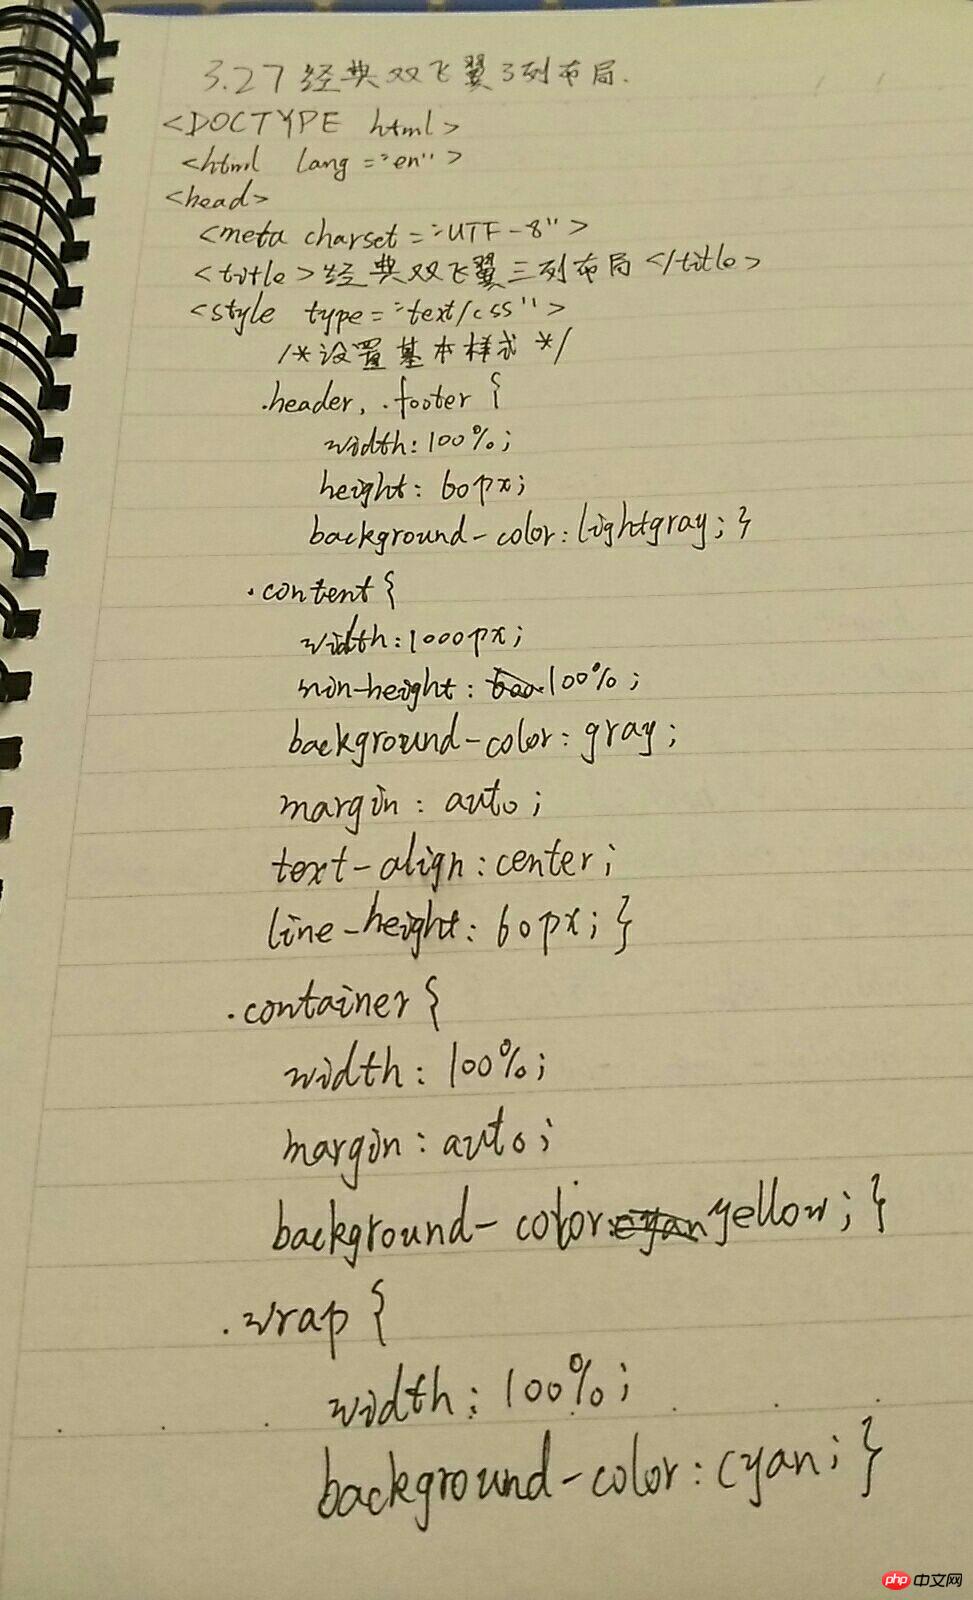 3.27经典双飞翼3列布局.
<DOCTYPE html>
<html lang="en">
<head>
<meta charset="UTF-8">
<title>经典双飞翼三列布局</title>
<style type="text/css">
/*设置基本样式*/
.header, .footer {
width: 100%;
height: 60px;
background-color: lightgray; }
.content {
width: 1000px;
min-height: 100%;
background-color: gray;
margin: auto;
text-align: center;
line-height: 60px; }
.container {
width: 100%;
margin: auto;
background-color: yellow; }
.wrap {
width: 100%;
background-color: cyan; }
php 中文网